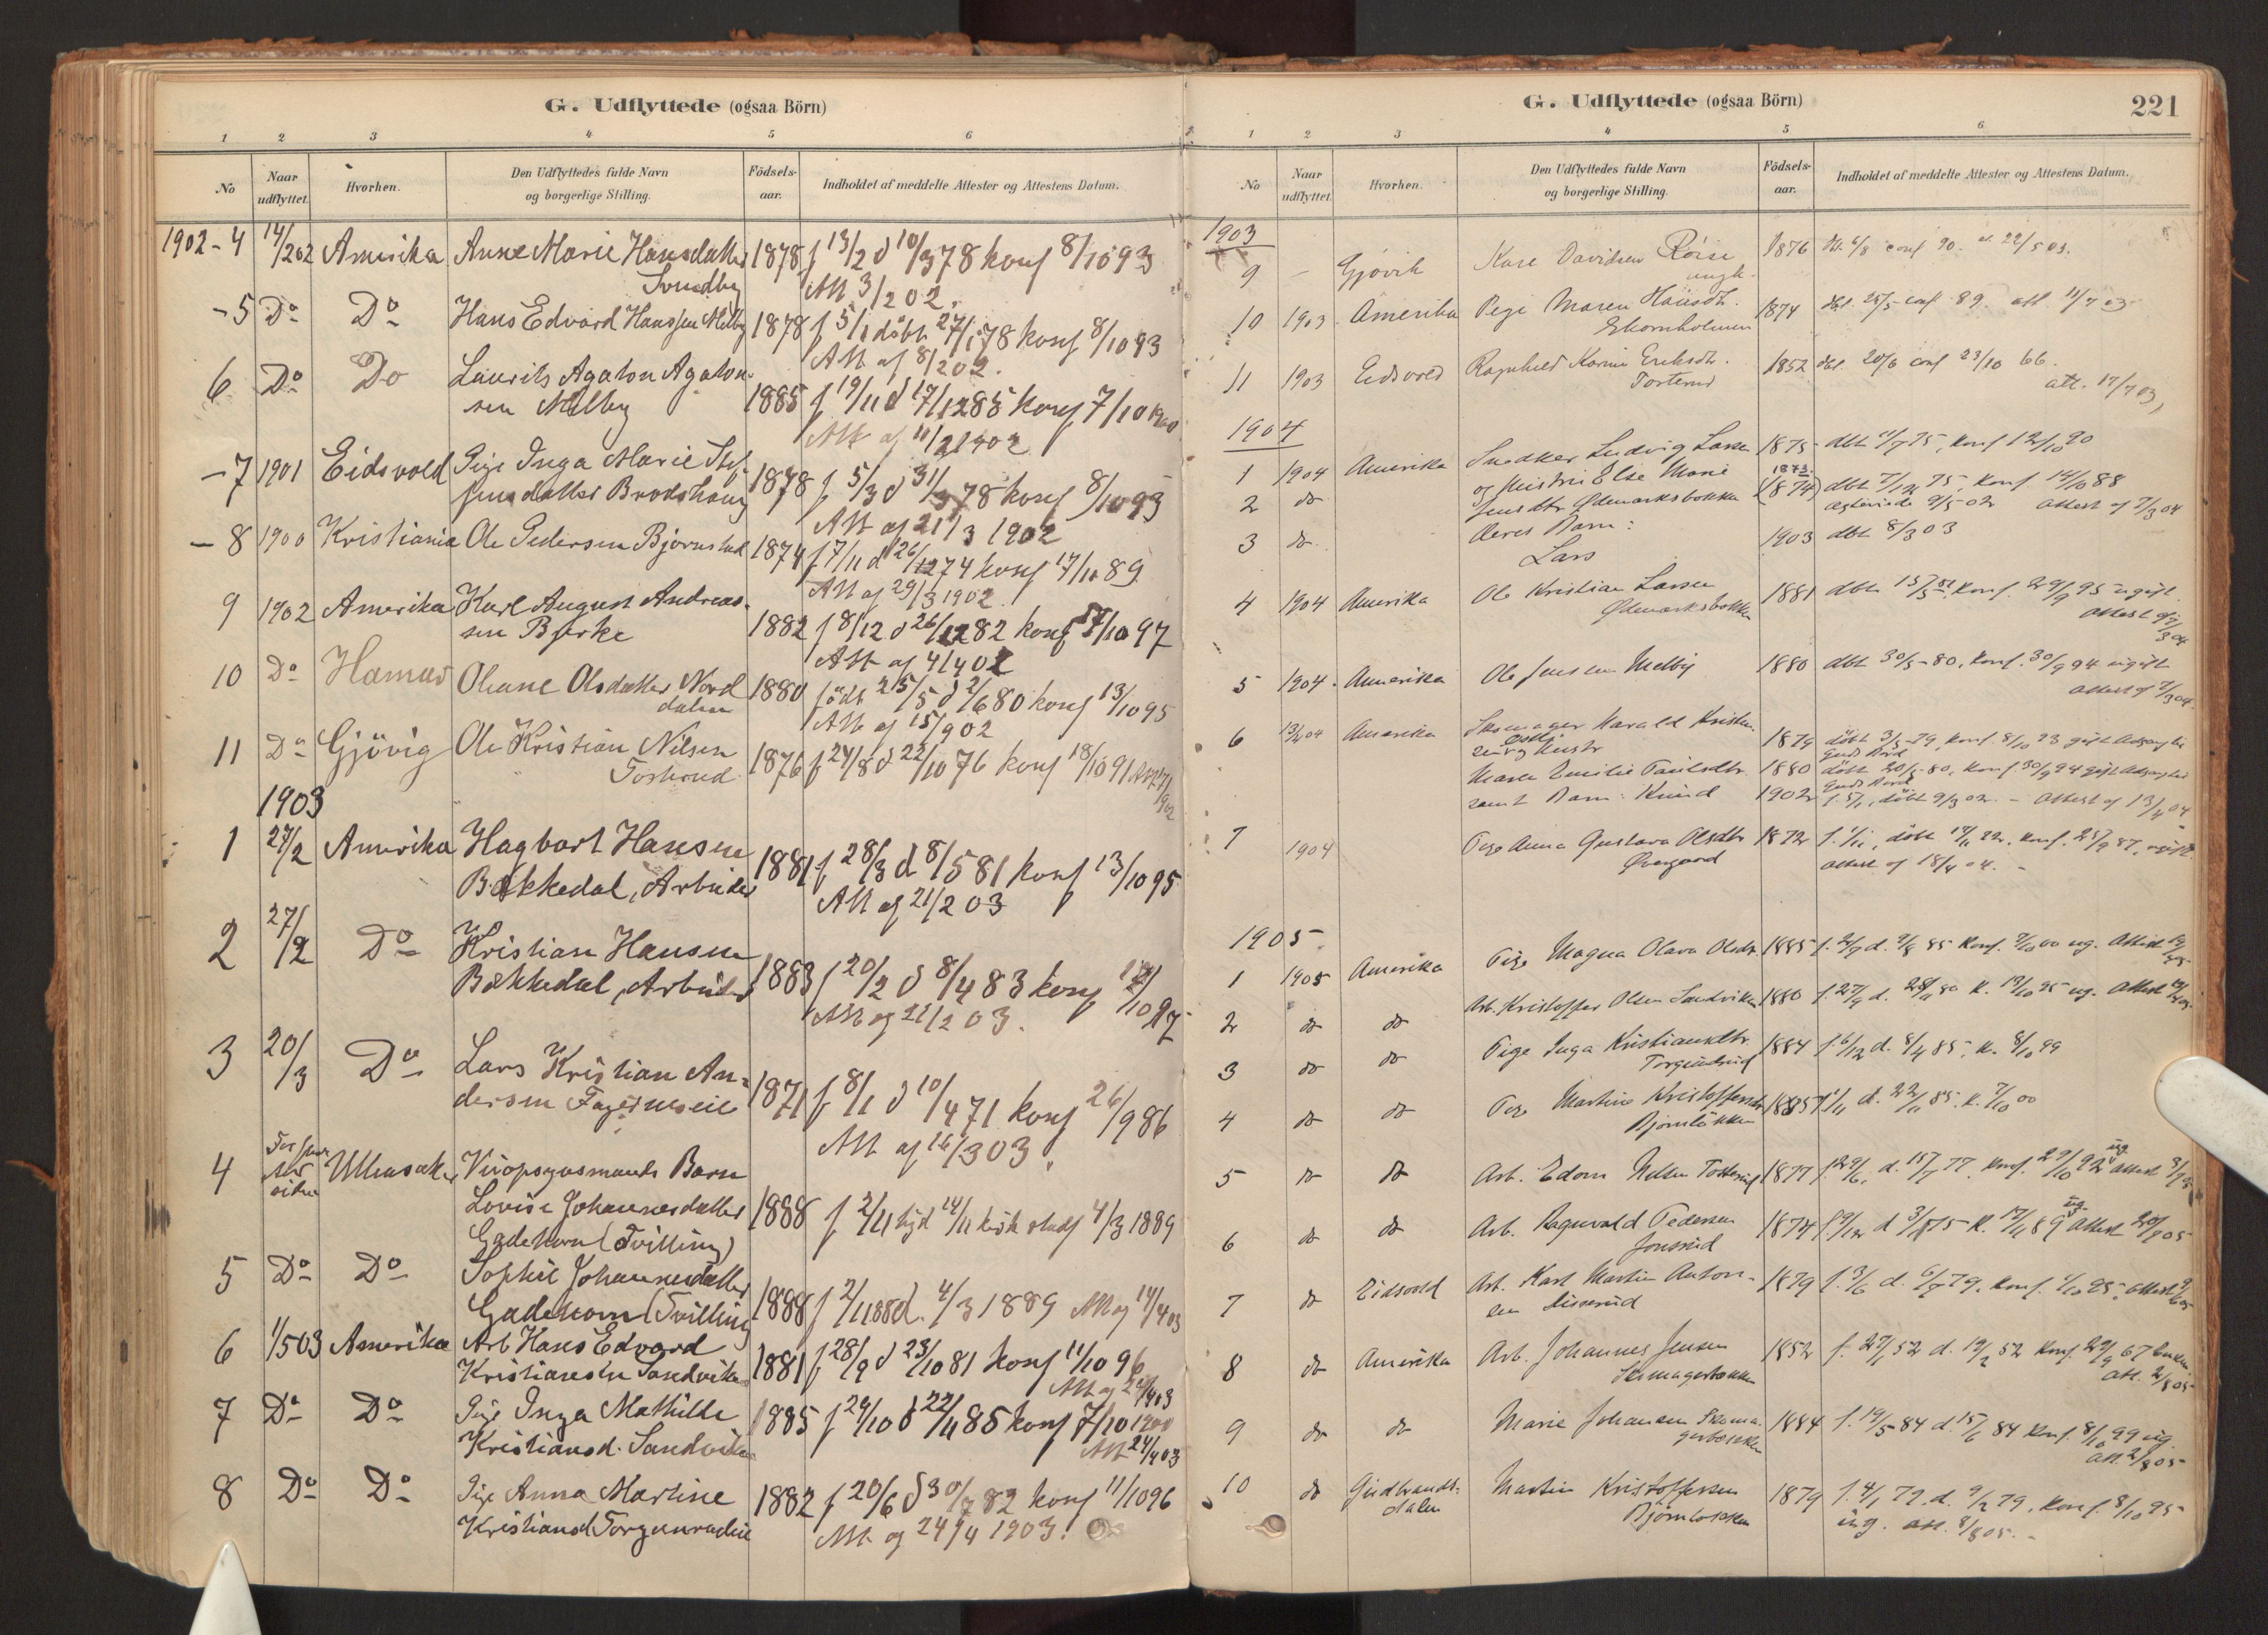 G. Udflyttede (ogsaa Börn)
1 2 3 4 5 6
No Naar udflyttet. Hvorhen. Den Udflyttedes fulde Navn og borgerlige Stilling. Födsels-aar. Indholdet af meddelte Attester og Attestens Datum.
1902-4 14/2 02 Amerika Anne Marie Hansdatter 1878 f 13/2 d 10/3 78 konf 8/10 93
Sundby Att 3/2 02.
-5 Do Do Hans Edvard Hanssen Melby 1878 f 5/1 döbt 27/1 78 konf 8/10 93
Att af 8/2 02.
6 Do Do Laurits Agaton Agaton-
sen Melby 1885 f 19/11 d 17/12 85 konf 7/10 1900
Att af 11/2 1902
-7 1901 Eidsvold Pige Inga Marie Stef-
fensdatter Brodshaug 1878 f 5/3 d 31/3 78 konf 8/10 93
Att af 21/3 1902
-8 1900 Kristiania Ole Pedersen Bjørnstad 1874 f 7/11 d 26/12 74 konf 17/11 89
Att af 29/3 1902.
9 1902 Amerika Karl August Andreas-
sen Bjerke 1882 f 8/12 d 26/12 82 konf 17/10 97
Att af 4/4 02
10 Do Hamar Oleane Olsdatter Nord 1880 födt 25/5 d 2/6 80 konf 13/10 95
dalen Att af 15/9 02
11 Do Gjövig Ole Kristian Nilsen
Tosterud 1876 f 24/8 d 22/10 76 konf 18/10 91
1903
1 27/2 Amerika Hagbart Hansen
Bækkedal, Arbeider 1881 f 28/3 d 8/5 81 konf 13/10 95
Att af 21/2 03
2 27/2 Do Kristian Hansen
Bækkedal, Arbeider 1883 f 20/2 d 8/4 83 konf 17/10 97
Att af 21/2 03.
3 20/3 Do Lars Kristian An-
dersen Fagerneseie 1871 f 8/1 d 10/4 71 konf 26/9 86
Att af 16/3 03.
4 Ullensaker Kirkesangermands Barn
Lovise Johannesdatter 1888 f 2/11 hjd 14/11 kirk stadf 4/3 1889
Gadekorn (Tvilling)
5 Do Do Sophie Johannesdatter
Gadekorn (Tvilling) 1888 f 2/11 88 d. 4/3 1889 Att af 14/4 03
6 1/5 03 Amerika Arb Hans Edvard
Kristiansen Sandviken 1881 f 28/9 d 23/10 81 konf 11/10 96
Att af 24/4 03
7 Do Do Pige Inga Mathilde
Kristiansd. Sandviken 1885 f 29/10 d 22/11 85 konf 7/10 1900
Att 24/4 03
8 Do Do Pige Anna Martine
Kristiansd Torgunrudeie 1882 f 20/6 d 30/7 82 konf 11/10 96
Att af 24/4 1903.
G. Udflyttede (ogsaa Börn) 221
1 2 3 4 5 6
No Naar udflyttet Hvorhen. Den Udflyttedes fulde Navn og borgerlige Stilling. Födsels-aar. Indholdet af meddelte Attester og Attestens Datum.
1903
9 - Gjøvik Kare Davidsen Røise 1876 conf 90. 22/5 03.
ungk.
10 1903. Amerika Pige Maren Hansdt. 1874 dbt. 25/5 conf 89. att 11/7 03
Ekornholmen
11 1903 Eidsvold Ragnhild Karine Eriksdt. 1852 dbt. 20/6 conf 23/10 66.
Tosterud att. 17/7 03,
1904
1 1904 Amerika Snedker Ludvig Larsen 1875 dbt 11/7 75, konf 12/10 90
og Hustru Else Marie 1873.
2 do Jensdtr Ødemarksbakken (1874) dbt 7/12 73, konf 14/10 88
ægteviede 9/5 02 attest af 7/3 04
3 do Deres Barn: 1903 dbt 8/3 03
Lars
4 1904 Amerika Ole Kristian Larsen 1881 dbt 15/5 81, konf. 29/9 95 ugift.
Ødemarksbakken attest af 7/3 04
5 1904. Amerika Ole Jensen Melby 1880 dbt 30/5-80, konf. 30/9 94 ugift
attest af 7/3 04.
6 13/4 04 Amerika Skomager Harald Kristian-
sen og Hustr 1879 döbt 3/5-79, konf. 8/10 93 gift
Maren Emilie Paulsdtr. 1880 döbt 20/5-80, konf 30/9 94 gift
samt Barn: Knud 1902 f. 5/1, döbt 9/3 02. - Attest af 13/4 04
7 1904 Pige Anna Gustava Olsdtr 1872 f. 1/1, döbt 17/11 72, konf. 25/9 87, ugift
Øvergaard attest af 18/4 04. -
1905.
1 1905 Amerika Pige Magna Olava Olsdtr. 1885 f. 2/7 d. 9/8 85 Konf. 7/10 00 ug. Attest
2 do do Arb. Kristoffer Olsen Sandviken 1880 f. 27/9 d. 28/11 80 k. 13/10 95 ug. Attest
3 do do Pige Inga Kristiansdtr. 1884 f. 6/12 d. 8/4 85, k. 8/10 99
Torgunrud
4 do do Pige Martine Kristoffersdtr 1885 f. 1/11 d. 22/11 85. k. 7/10 00
Bjørnløkken
5 do do Arb. Edom Nilsen Tosterud 1877 f. 29/6, d. 15/7 77. konf. 29/10 92 ug attest
6 do do Arb. Ragnvald Pedersen 1874 f. 9/12 d 3/1 75 k. 17/11 89 ug. attest 20/7 05
Jonsrud
7 do Eidsvold Arb. Karl Martin Anton- 1879 f. 3/6 d. 6/7 79. konf. 7/10 93. attest
sen Disserud
8 do Amerika Arb. Johannes Jensen 1852 f. 27/1 52 d. 19/2 52 konf. 29/9 67
Skomagerbakken att. 2/8 05
9 do do Marie Johansen Skoma- 1884 f. 19/5 84 d. 15/6 84 konf. 8/10 99 ug.
gerbakken att. 2/8 05
10 do Gudbrands-
dalen Martin Kristoffersen 1879 f. 4/1 79. d. 9/2 79. konf. 8/10 95
Bjørnløkken ug. att. 8/8 05. -